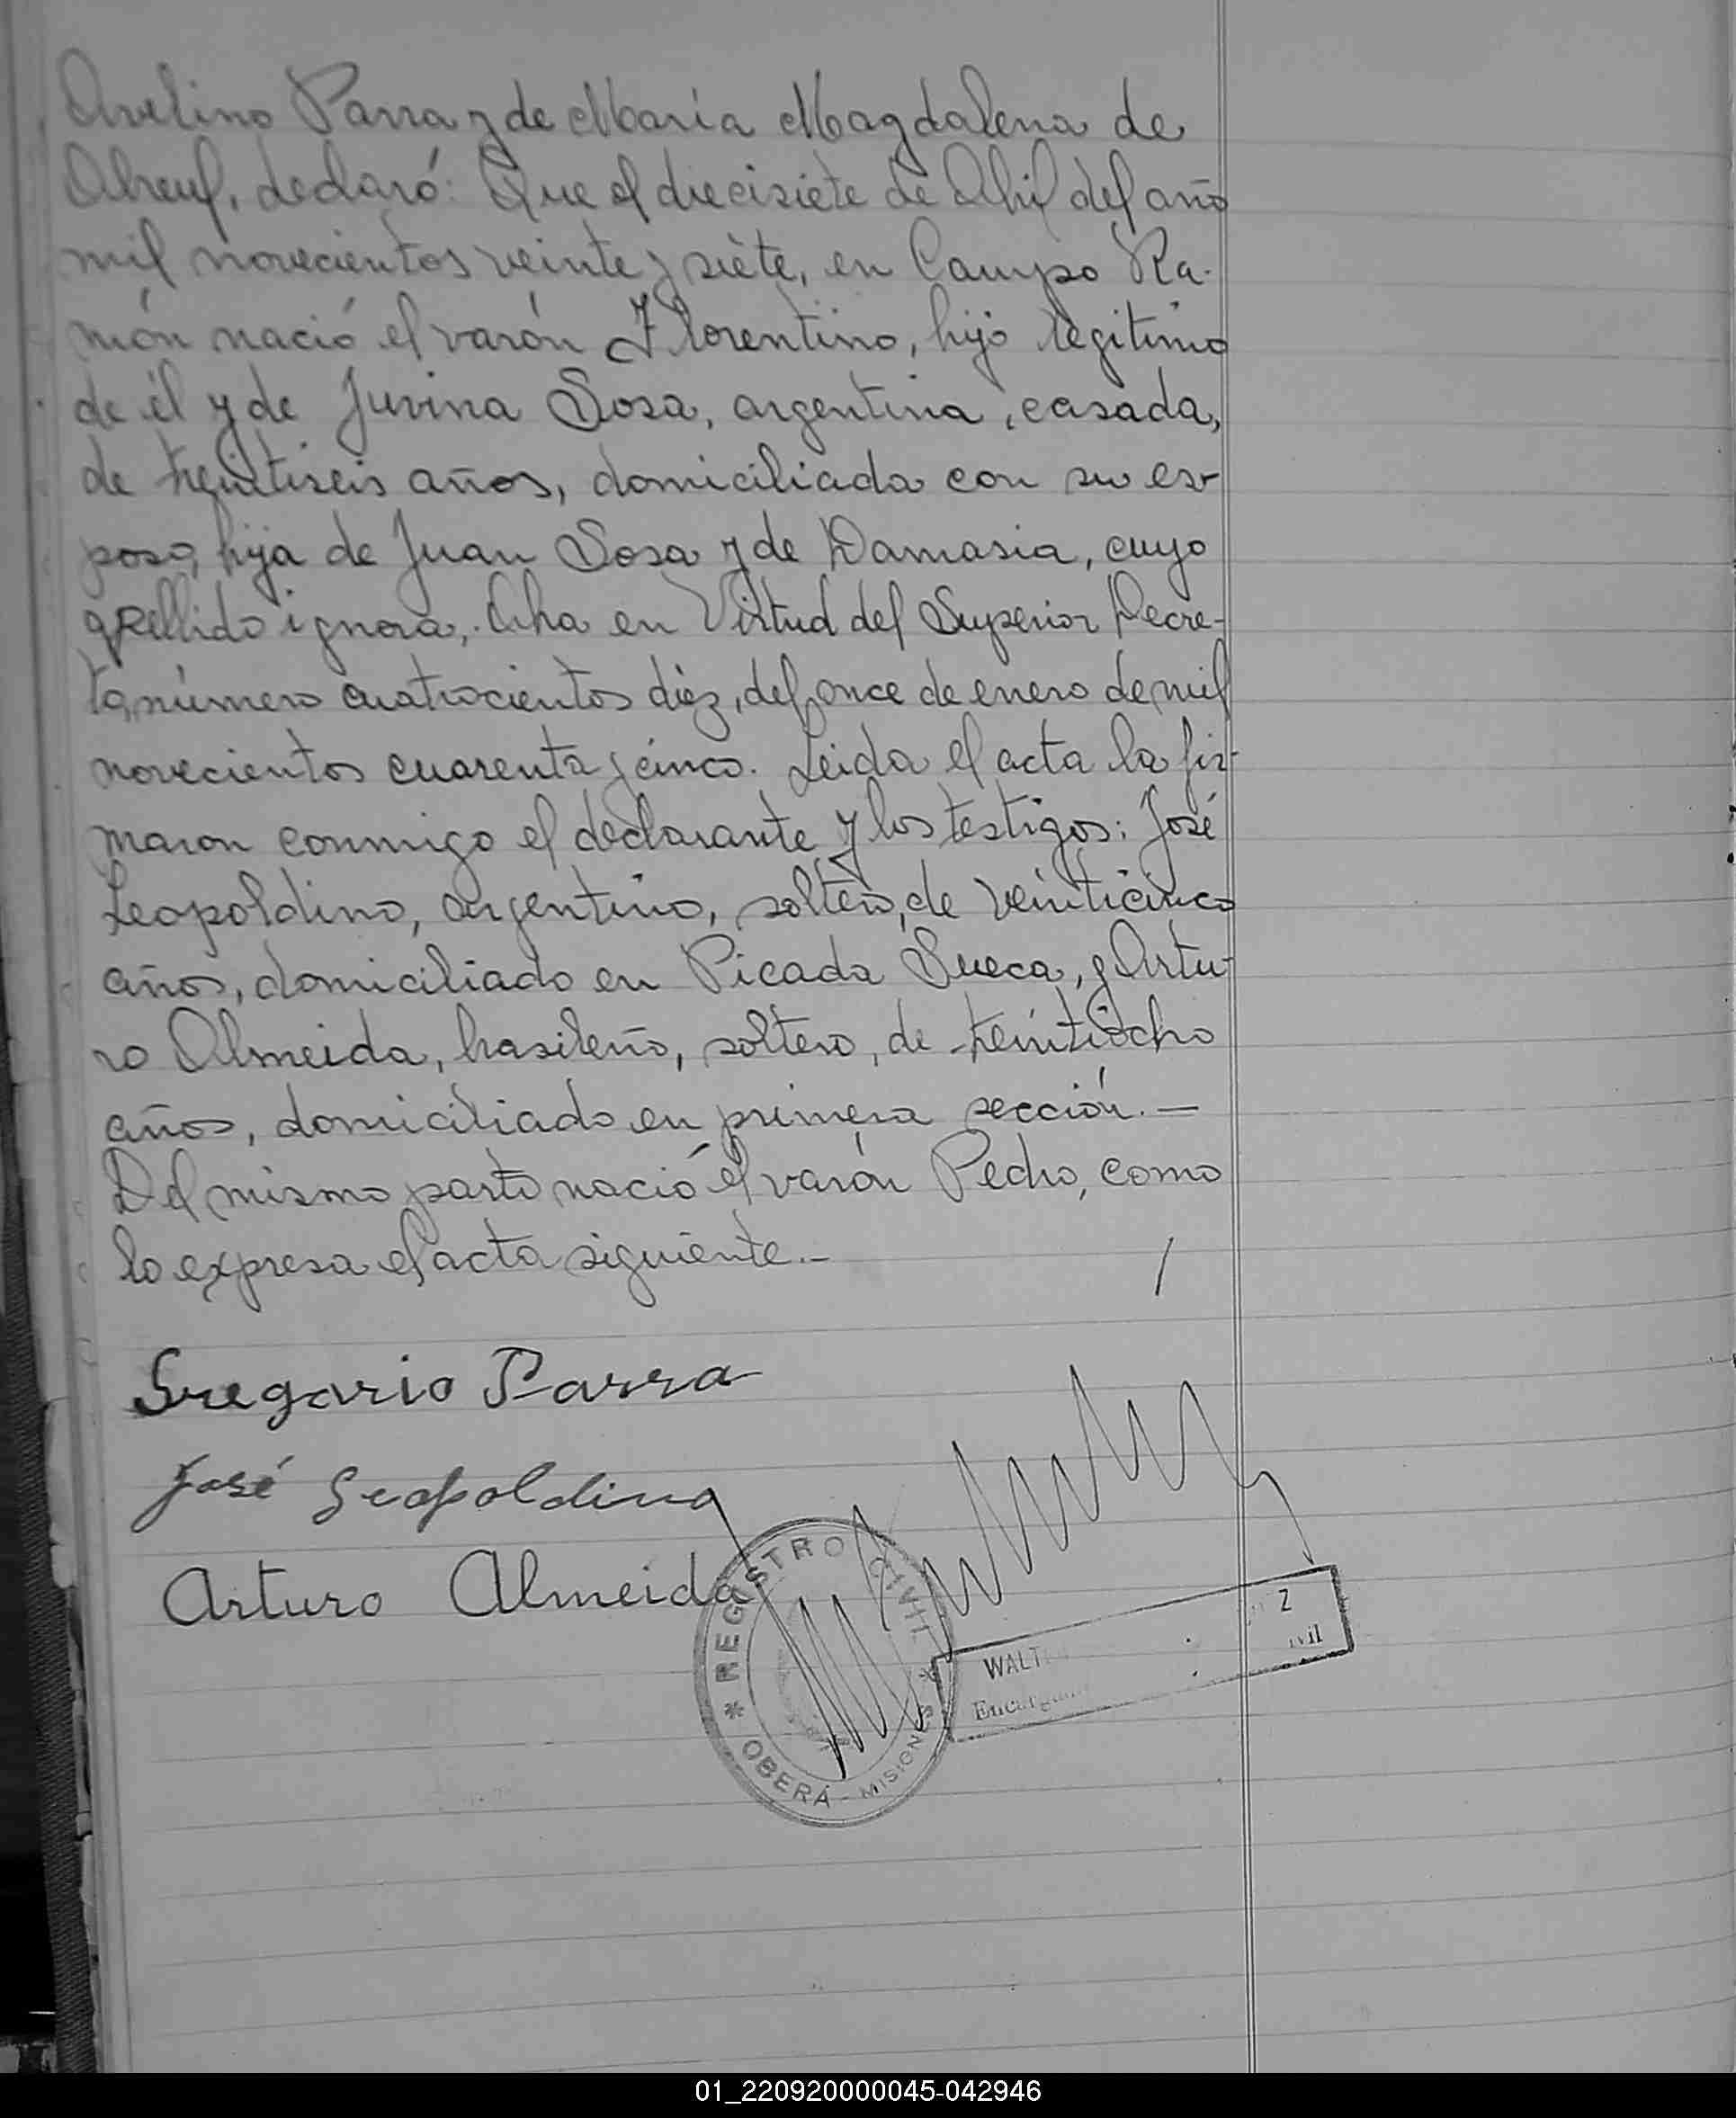 Avelino Parra y de María Magdalena de
Abreuf, declaró: Que el diecisiete de Abril del año
mil novecientos veinte y siete, en Campo Ra-
món nació el varón Florentino, hijo legítimo
de él y de Juvina Sosa, argentina, casada,
de treintiseis años, domiciliada con su es-
poso, hija de Juan Sosa y de Damasia, cuyo
apellido ignora, en Virtud del Superior Decre-
to, número cuatrocientos diez, del once de enero de mil
novecientos cuarenta y cinco. Leida el acta la fir-
maron conmigo el declarante y los testigos: José
Leopoldino, argentino, soltero, de veinticinco
años, domiciliado en Picada Sueca, y Artu-
ro Almeida, brasileño, soltero, de treintiocho
años, domiciliado en primera sección.—
Del mismo parto nació el varón Pedro, como
lo expresa el acta siguiente.—
Gregorio Parra
José Leopoldino
Arturo Almeida
REGISTRO CIVIL
* OBERÁ - MISIONES *
WALT
Z
01_220920000045-042946